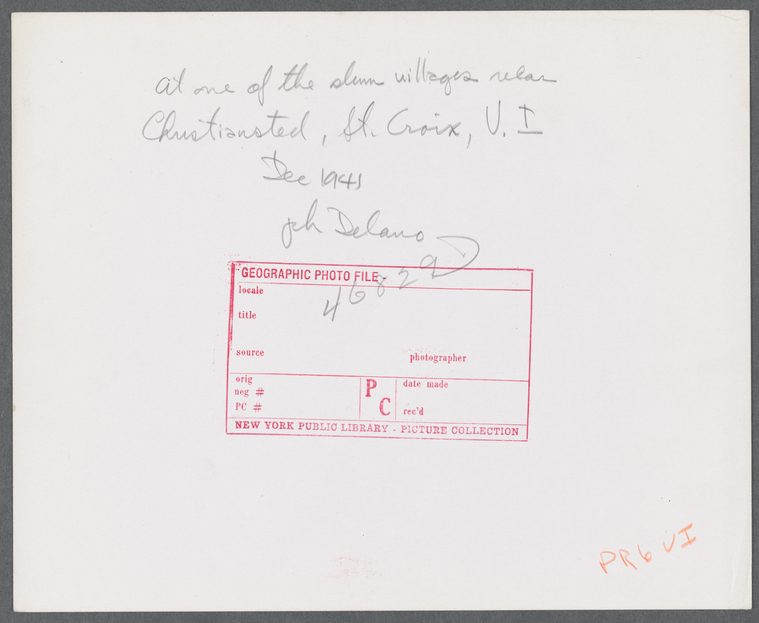 At one of the slum villages near
Christiansted, St. Croix, V. I
Dec 1941
ph Delano
46829 D
GEOGRAPHIC PHOTO FILE -
locale
title
source
photographer
orig
neg #
PC #
P
C
date made
rec'd
NEW YORK PUBLIC LIBRARY - PICTURE COLLECTION
PR6 VI